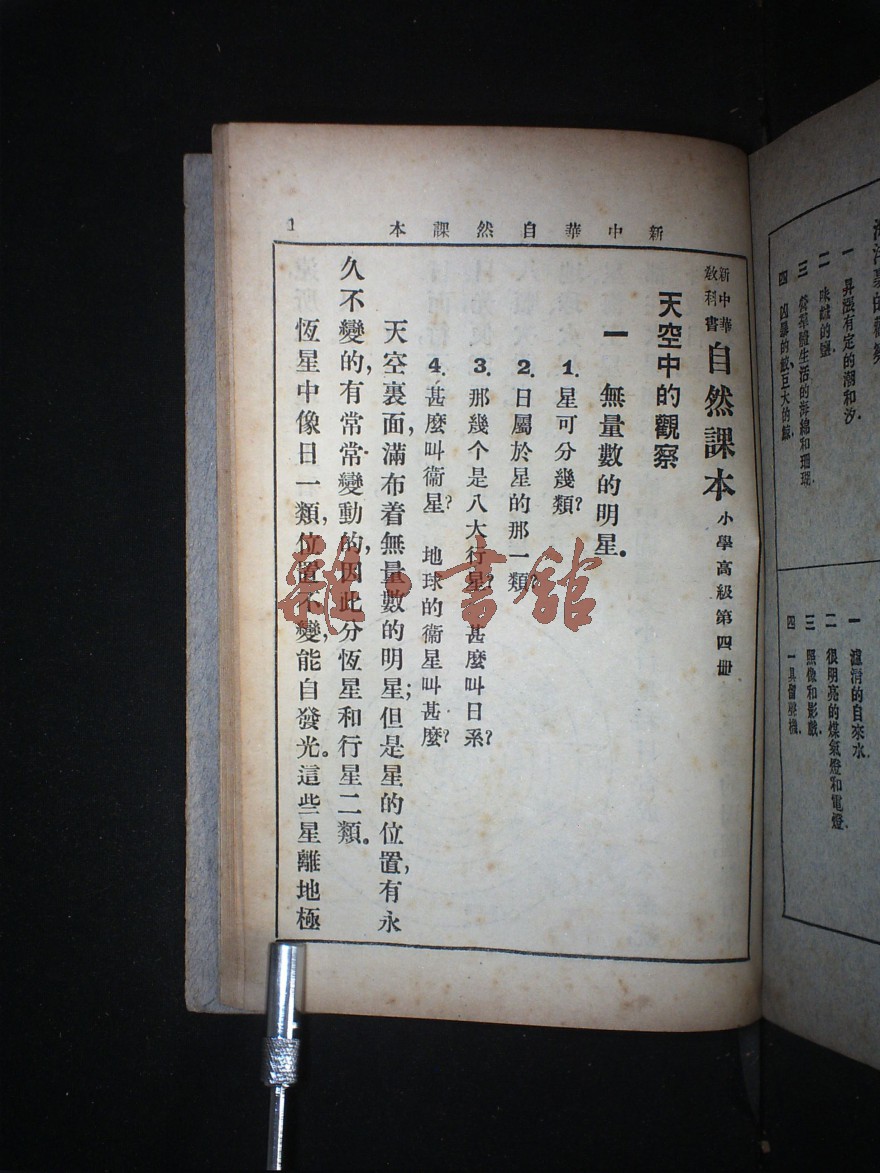 海洋裏的觀察
一 昇漲有定的潮和汐.
二 味鹹的鹽.
三 營羣體生活的海綿和珊瑚.
四 凶暴的鮫,巨大的鯨.
一 濾清的自來水.
二 很明亮的煤氣燈和電燈.
三 照像和影戲.
四 一具留聲機.
新中華自然課本
1
新中華教科書 自然課本 小學高級第四冊
天空中的觀察
一 無量數的明星。
1. 星可分幾類?
2. 日屬於星的那一類?
3. 那幾个是八大行星? 甚麼叫日系?
4. 甚麼叫衞星? 地球的衞星叫甚麼?
天空裏面,滿布着無量數的明星;但是星的位置,有永
久不變的,有常常變動的,因此分恆星和行星二類。
恆星中像日一類,位置不變,能自發光。這些星離地極
雜·書館